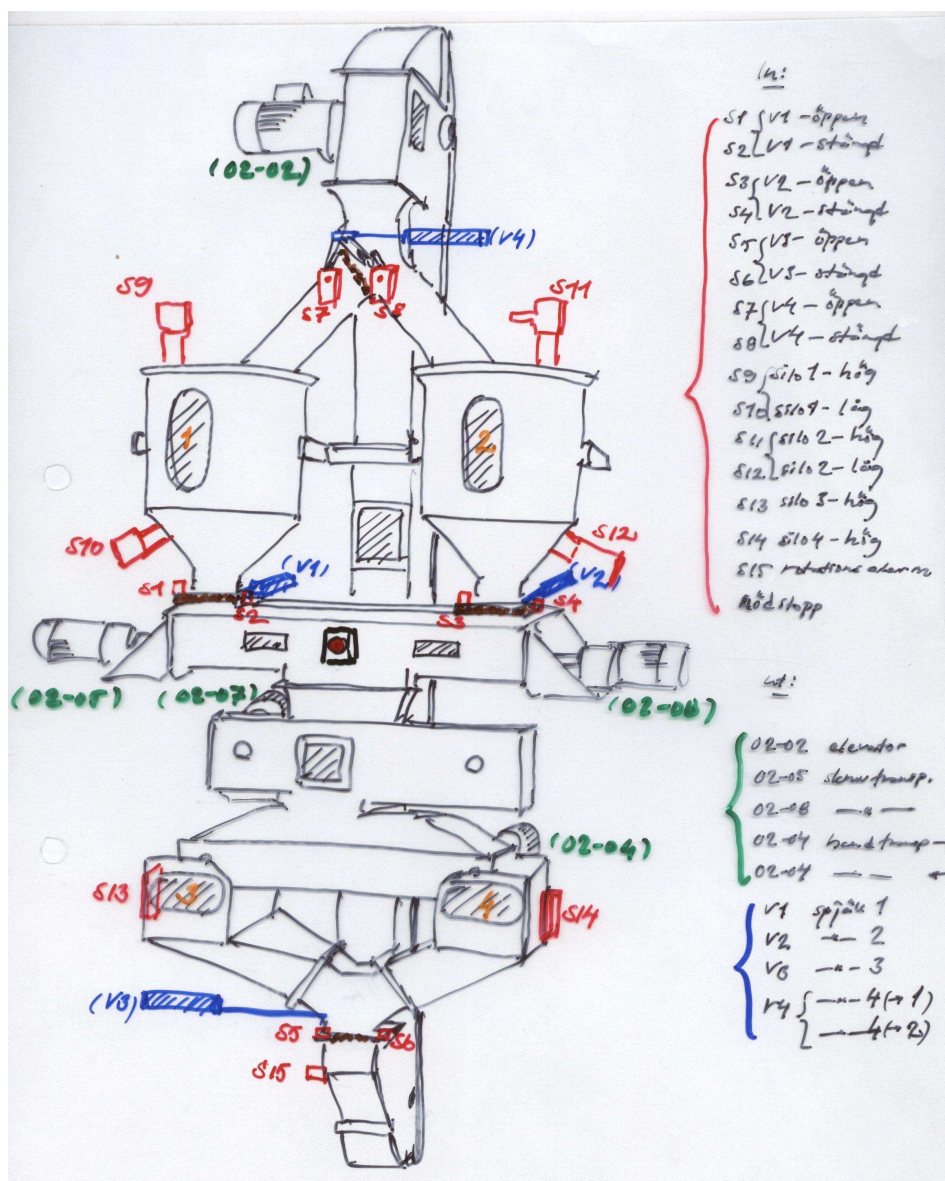 (02-02)
(V4)
S7
S8
S9
S11
1
2
S10
S12
S1
(V1)
S2
(V2)
S3
S4
(02-05)
(02-07)
(02-08)
(02-04)
S13
3
4
S14
(V3)
S5
S6
S15
In:
S1 V1 - öppen
S2 V1 - stängd
S3 V2 - öppen
S4 V2 - stängd
S5 V3 - öppen
S6 V3 - stängd
S7 V4 - öppen
S8 V4 - stängd
S9 silo 1 - hög
S10 silo 1 - låg
S11 silo 2 - hög
S12 silo 2 - låg
S13 silo 3 - hög
S14 silo 4 - hög
S15 rotations
Nödstopp
ut:
02-02 elevator
02-05 skruvtransp.
02-08 — " —
02-04 bandtransp
02-04
V1 spjäll 1
V2 — " — 2
V3 — " — 3
V4 — " — 4 (→ 1)
— 4 (→ 2)